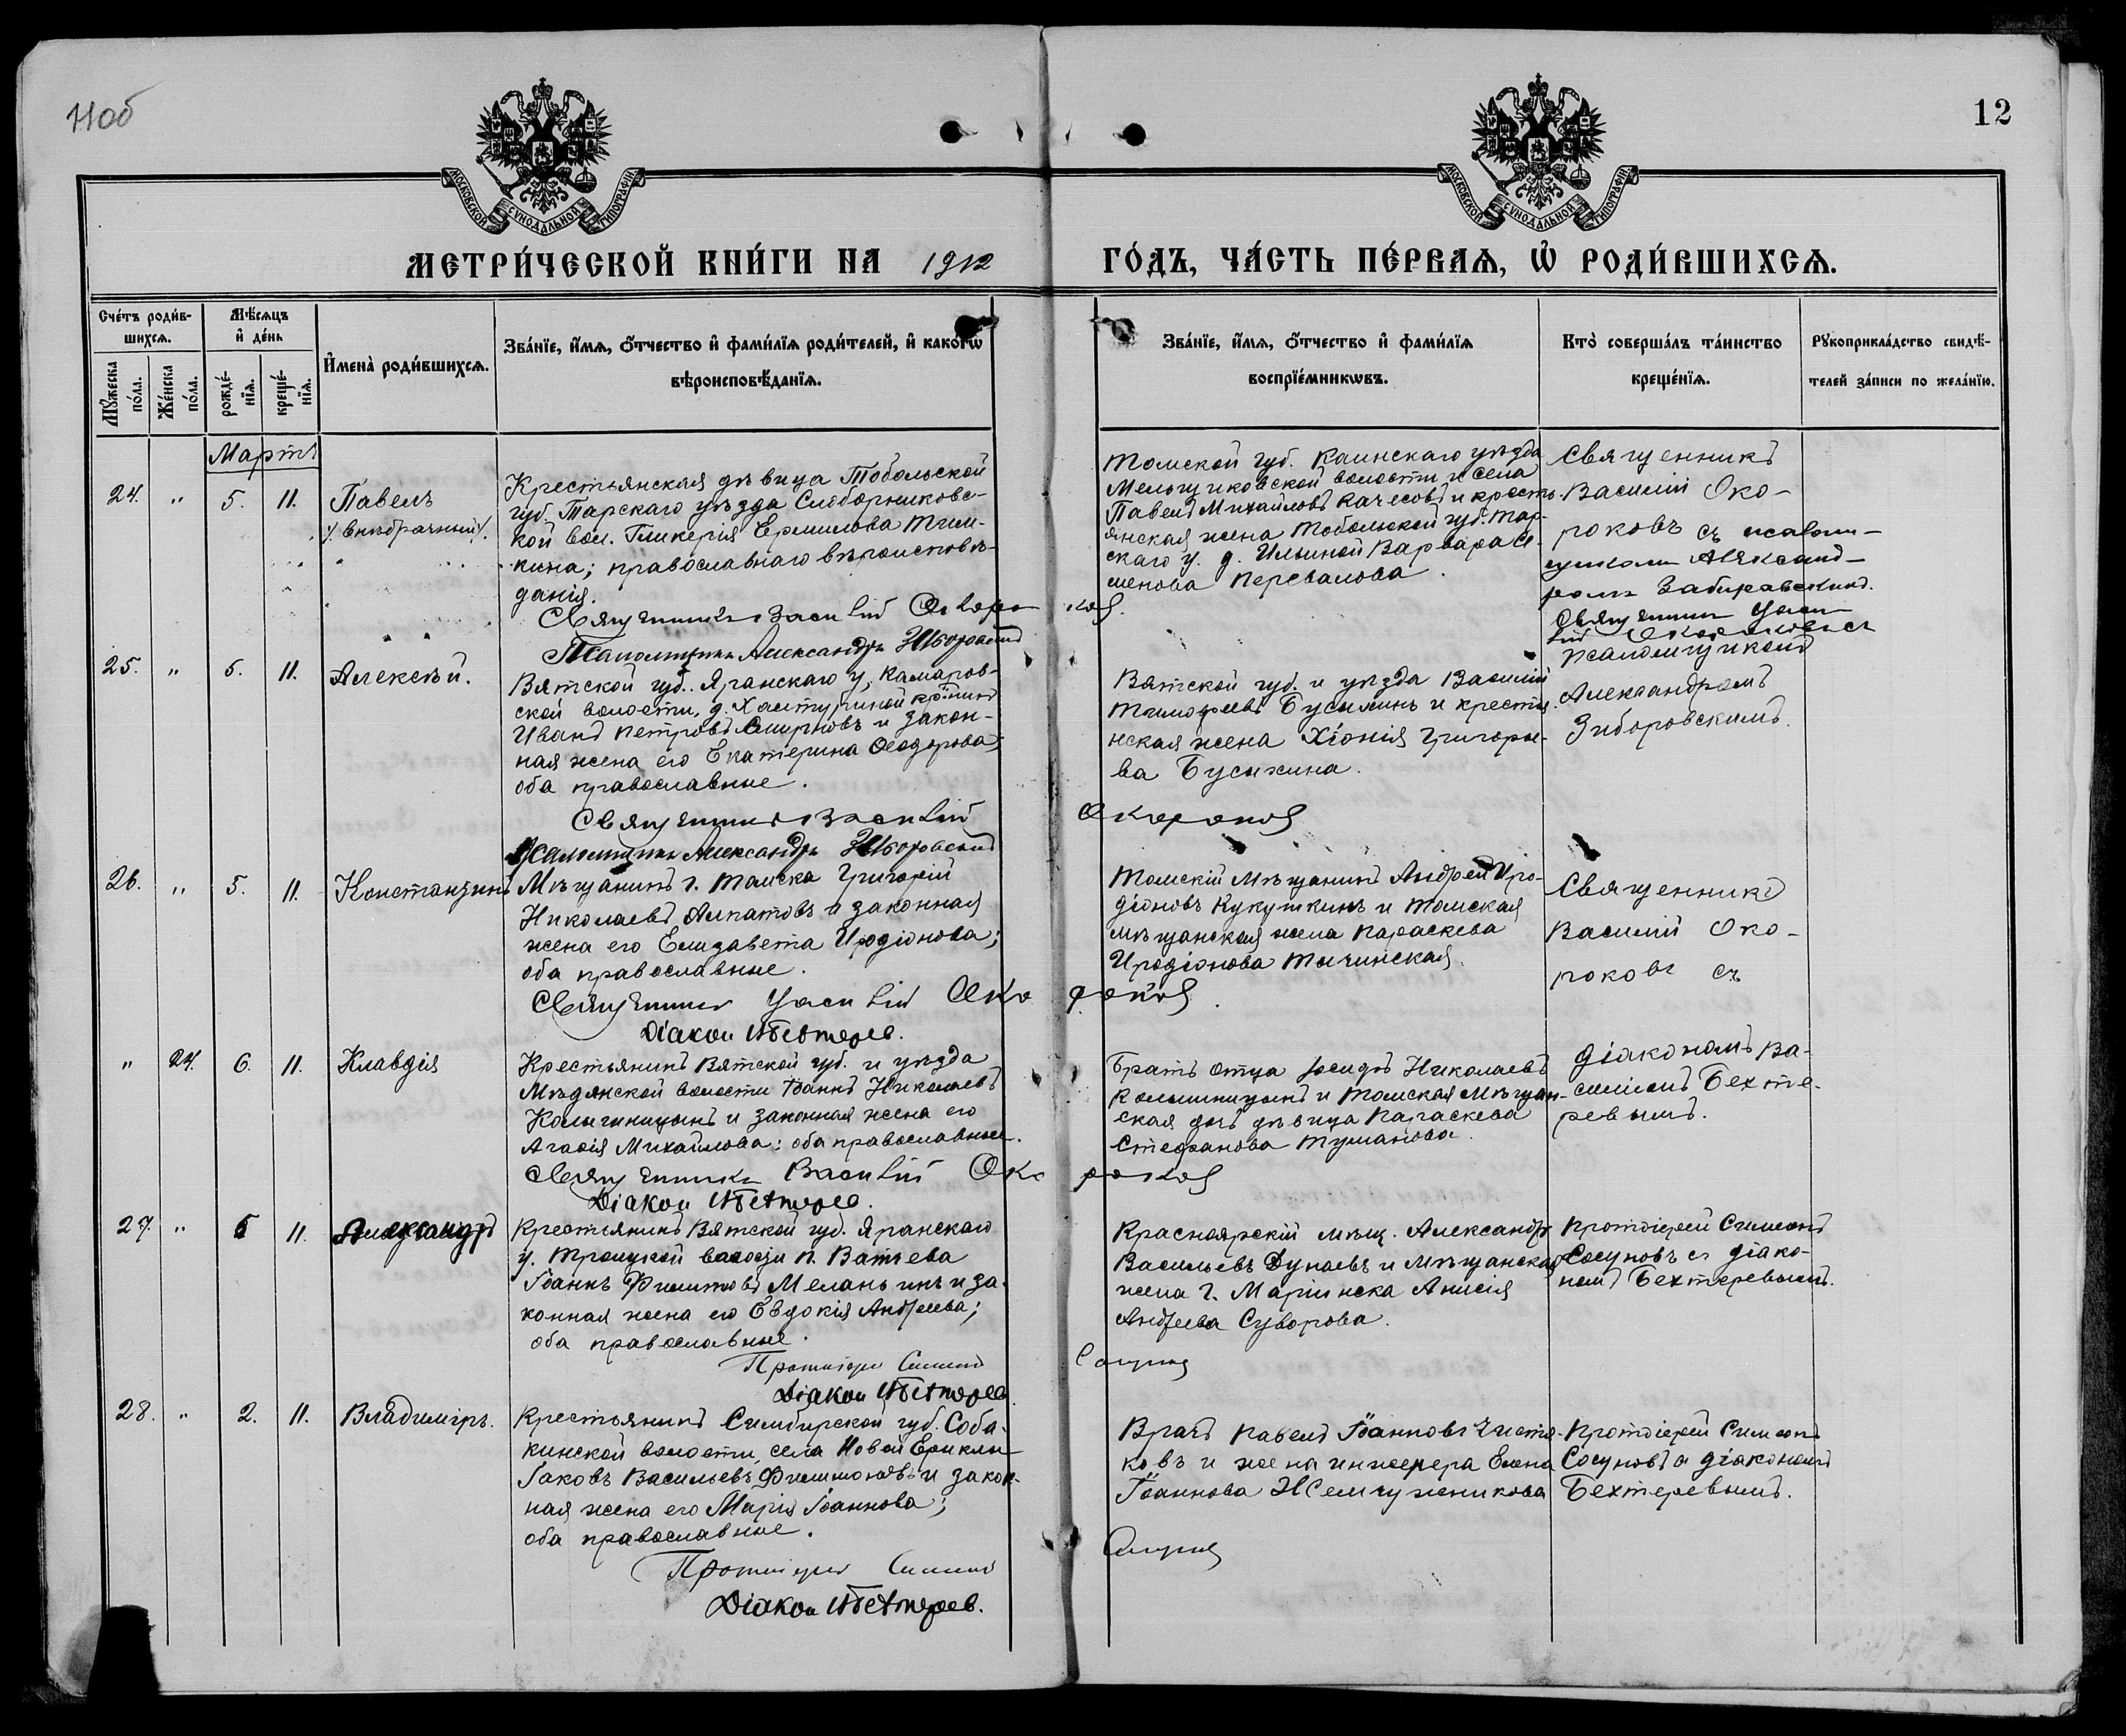 11об
12
МОСКОВСКОЙ СѴНОДАЛЬНОЙ ТИПОГРАФІИ
МОСКОВСКОЙ СѴНОДАЛЬНОЙ ТИПОГРАФІИ
МЕТРИ́ЧЕСКОЙ КНИ́ГИ НА 1912 ГО́ДЪ, ЧА́СТЬ ПЕ́РВАЯ, Ѡ РОДИ́ВШИХСЯ.
Сче́тъ роди́в-
шихся.
Мꙋ́жеска по́ла.
Же́нска по́ла.
Мѣ́сяцъ
и де́нь
рожде́-нїя.
креще́-нїя.
И҆мена̀ роди́вшихся.
Зва́нїе, и҆́мя, ѻ҆́тчество и҆ фами́лїя роди́телей, и҆ како́гѡ
вѣроисповѣ́данїя.
Зва́нїе, и҆́мя, ѻ҆́тчество и҆ фами́лїя
воспрїе́мникѡвъ.
Кто̀ соверша́лъ та́инство
креще́нїя.
Рꙋкоприкла́дство свидѣ́-
телей за́писи по жела́нїю.
Мартъ
24. " 5. 11. Павелъ
внѣбрачный
Крестьянская дѣвица Тобольской
губ. Тарскаго уѣзда Слободчиковс-
кой вол. Гликерія Ермилова Тим-
кина; православнаго вѣроисповѣ-
данія.
Священникъ Василій Окороковъ
Псаломщикъ Александръ Зиборовскій
Томской губ. Каинскаго уѣзда
волости и села
Павелъ Михайловъ Качесовъ и кресть-
янская жена Тобольской губ. Тар-
скаго у. д. Ильиной Варвара Се-
менова Перевалова.
Священникъ
Василій Око-
роковъ съ псалом-
щикомъ Александ-
ромъ
Священникъ
25. " 5. 11. Алексѣй.
Вятской губ. Яранскаго у, Комаров-
ской волости, д.
Иванъ Петровъ Смирновъ и закон-
ная жена его Екатерина Ѳеодорова;
оба православные.
Священникъ Василій Окороковъ
Псаломщикъ Александръ Зиборовскій
Вятской губ. и уѣзда Василій
Тимофеевъ Бусыхинъ и кресть-
нская жена Хіонія Григорье-
ва Бусыхина.
псаломщикомъ
Александромъ
Зиборовскимъ.
26. " 5. 11. Константинъ
Мѣщанинъ г. Томска Григорій
Николаевъ Алпатовъ и законная
жена его Елизавета Иродіонова;
оба православные.
Священникъ Василій Окороковъ
Діаконъ В Бехтерев.
Томскій мѣщанинъ Андрей Иро-
діоновъ Кукушкинъ и Томская
мѣщанская жена Параскева
Иродіонова Тычинская.
Священникъ
Василій Око-
роковъ съ
" 24. 6. 11. Клавдія
Крестьянинъ Вятской губ. и уѣзда
Мѣдянской волости Іоаннъ Николаевъ
и законная жена его
Агафія Михайлова: оба православные.
Священникъ Василій Окороковъ
Діаконъ В Бехтерев.
Братъ отца Іосифъ Николаевъ
и Томская мѣщан-
ская дочь дѣвица Параскева
Стефанова Туманова.
діакономъ Ва-
силіемъ Бехте-
ревымъ.
27. " 5 11. Александръ
Крестьянинъ Вятской губ. Яранскаго
у. Троицкой волости
Іоаннъ Филиповъ Меланьинъ и за-
конная жена его Евдокія Андреева;
оба православные.
Протоіерей Симеонъ Сосуновъ
Діаконъ В Бехтерев.
Красноярскій мѣщ. Александръ
Васильевъ Дунаевъ и мѣщанская
жена г. Маріинска Анисія
Андреева Суворова.
Протоіерей Симеонъ
Сосуновъ съ діако-
номъ Бехтеревымъ.
28. " 2. 11. Владиміръ.
Крестьянинъ Симбирской губ. Соба-
кинской волости, села Новой Ериклы
Іаковъ Васильевъ Филимоновъ и закон-
ная жена его Марія Іоаннова;
оба православные.
Протоіерей Симеонъ Сосуновъ
Діаконъ В Бехтерев.
Врачъ Павелъ Іоанновъ Чистя-
ковъ и жена инженера Елена
Іоаннова Жемчужникова
Протоіерей Симеонъ
Сосуновъ съ діакономъ
Бехтеревымъ.